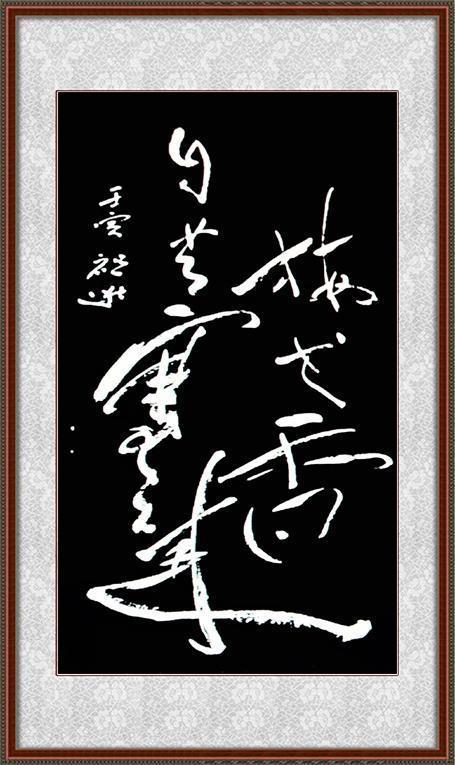 梅花香
自苦寒来
壬寅